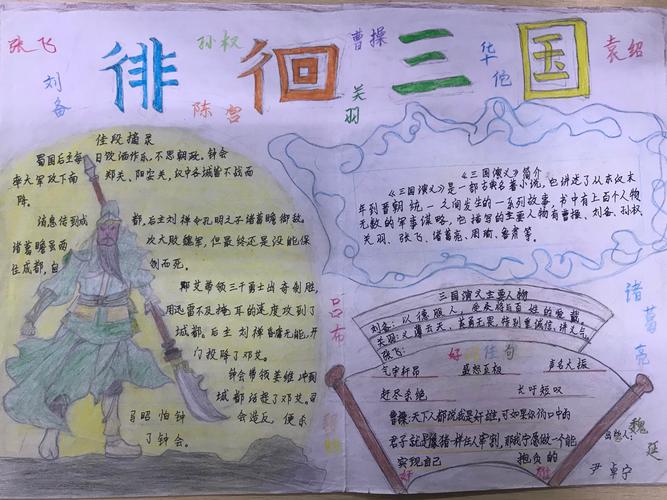 张飞
刘备
孙权
陈宫
曹操
关羽
华佗
袁绍
徘徊三国
佳段摘录
蜀国后主每日饮酒作乐,不思朝政。钟会
率大军攻下南郑关、阳安关,汉中各城皆不战而
降。
消息传到成都,后主刘禅令孔明之子诸葛瞻御敌。
诸葛瞻虽两次大败魏军,但最终还是没能保
住成都,自刎而死。
邓艾带领三千勇士出奇制胜,
用迅雷不及掩耳的速度攻到了
城都。后主刘禅昏庸无能,开
门投降了邓艾。
钟会带领姜维冲到
城都活捉了邓艾。司
马昭怕钟会造反,便杀
了钟会。
《三国演义》简介
《三国演义》是一部古典名著小说,它讲述了从东汉末
年到晋朝统一之间发生的一系列故事,书中有上百个人物
无数的军事谋略,它描写的主要人物有曹操、刘备、孙权、
关羽、张飞、诸葛亮、周瑜、鲁肃等。
吕布
诸葛亮
魏延
三国演义主要人物
刘备:以德服人,受众将后百姓的爱戴。
关羽:义薄云天、英勇无畏,特别重诚信,讲义气。
张飞:
好词佳句
气宇轩昂
虽怒至极
声名大振
赶尽杀绝
长吁短叹
曹操:天下人都说我是奸雄,可如果你们口中的
君子就是像猪一样任人宰割,那我宁愿做一个能
实现自己抱负的
奸雄
出始人:
尹卓宁